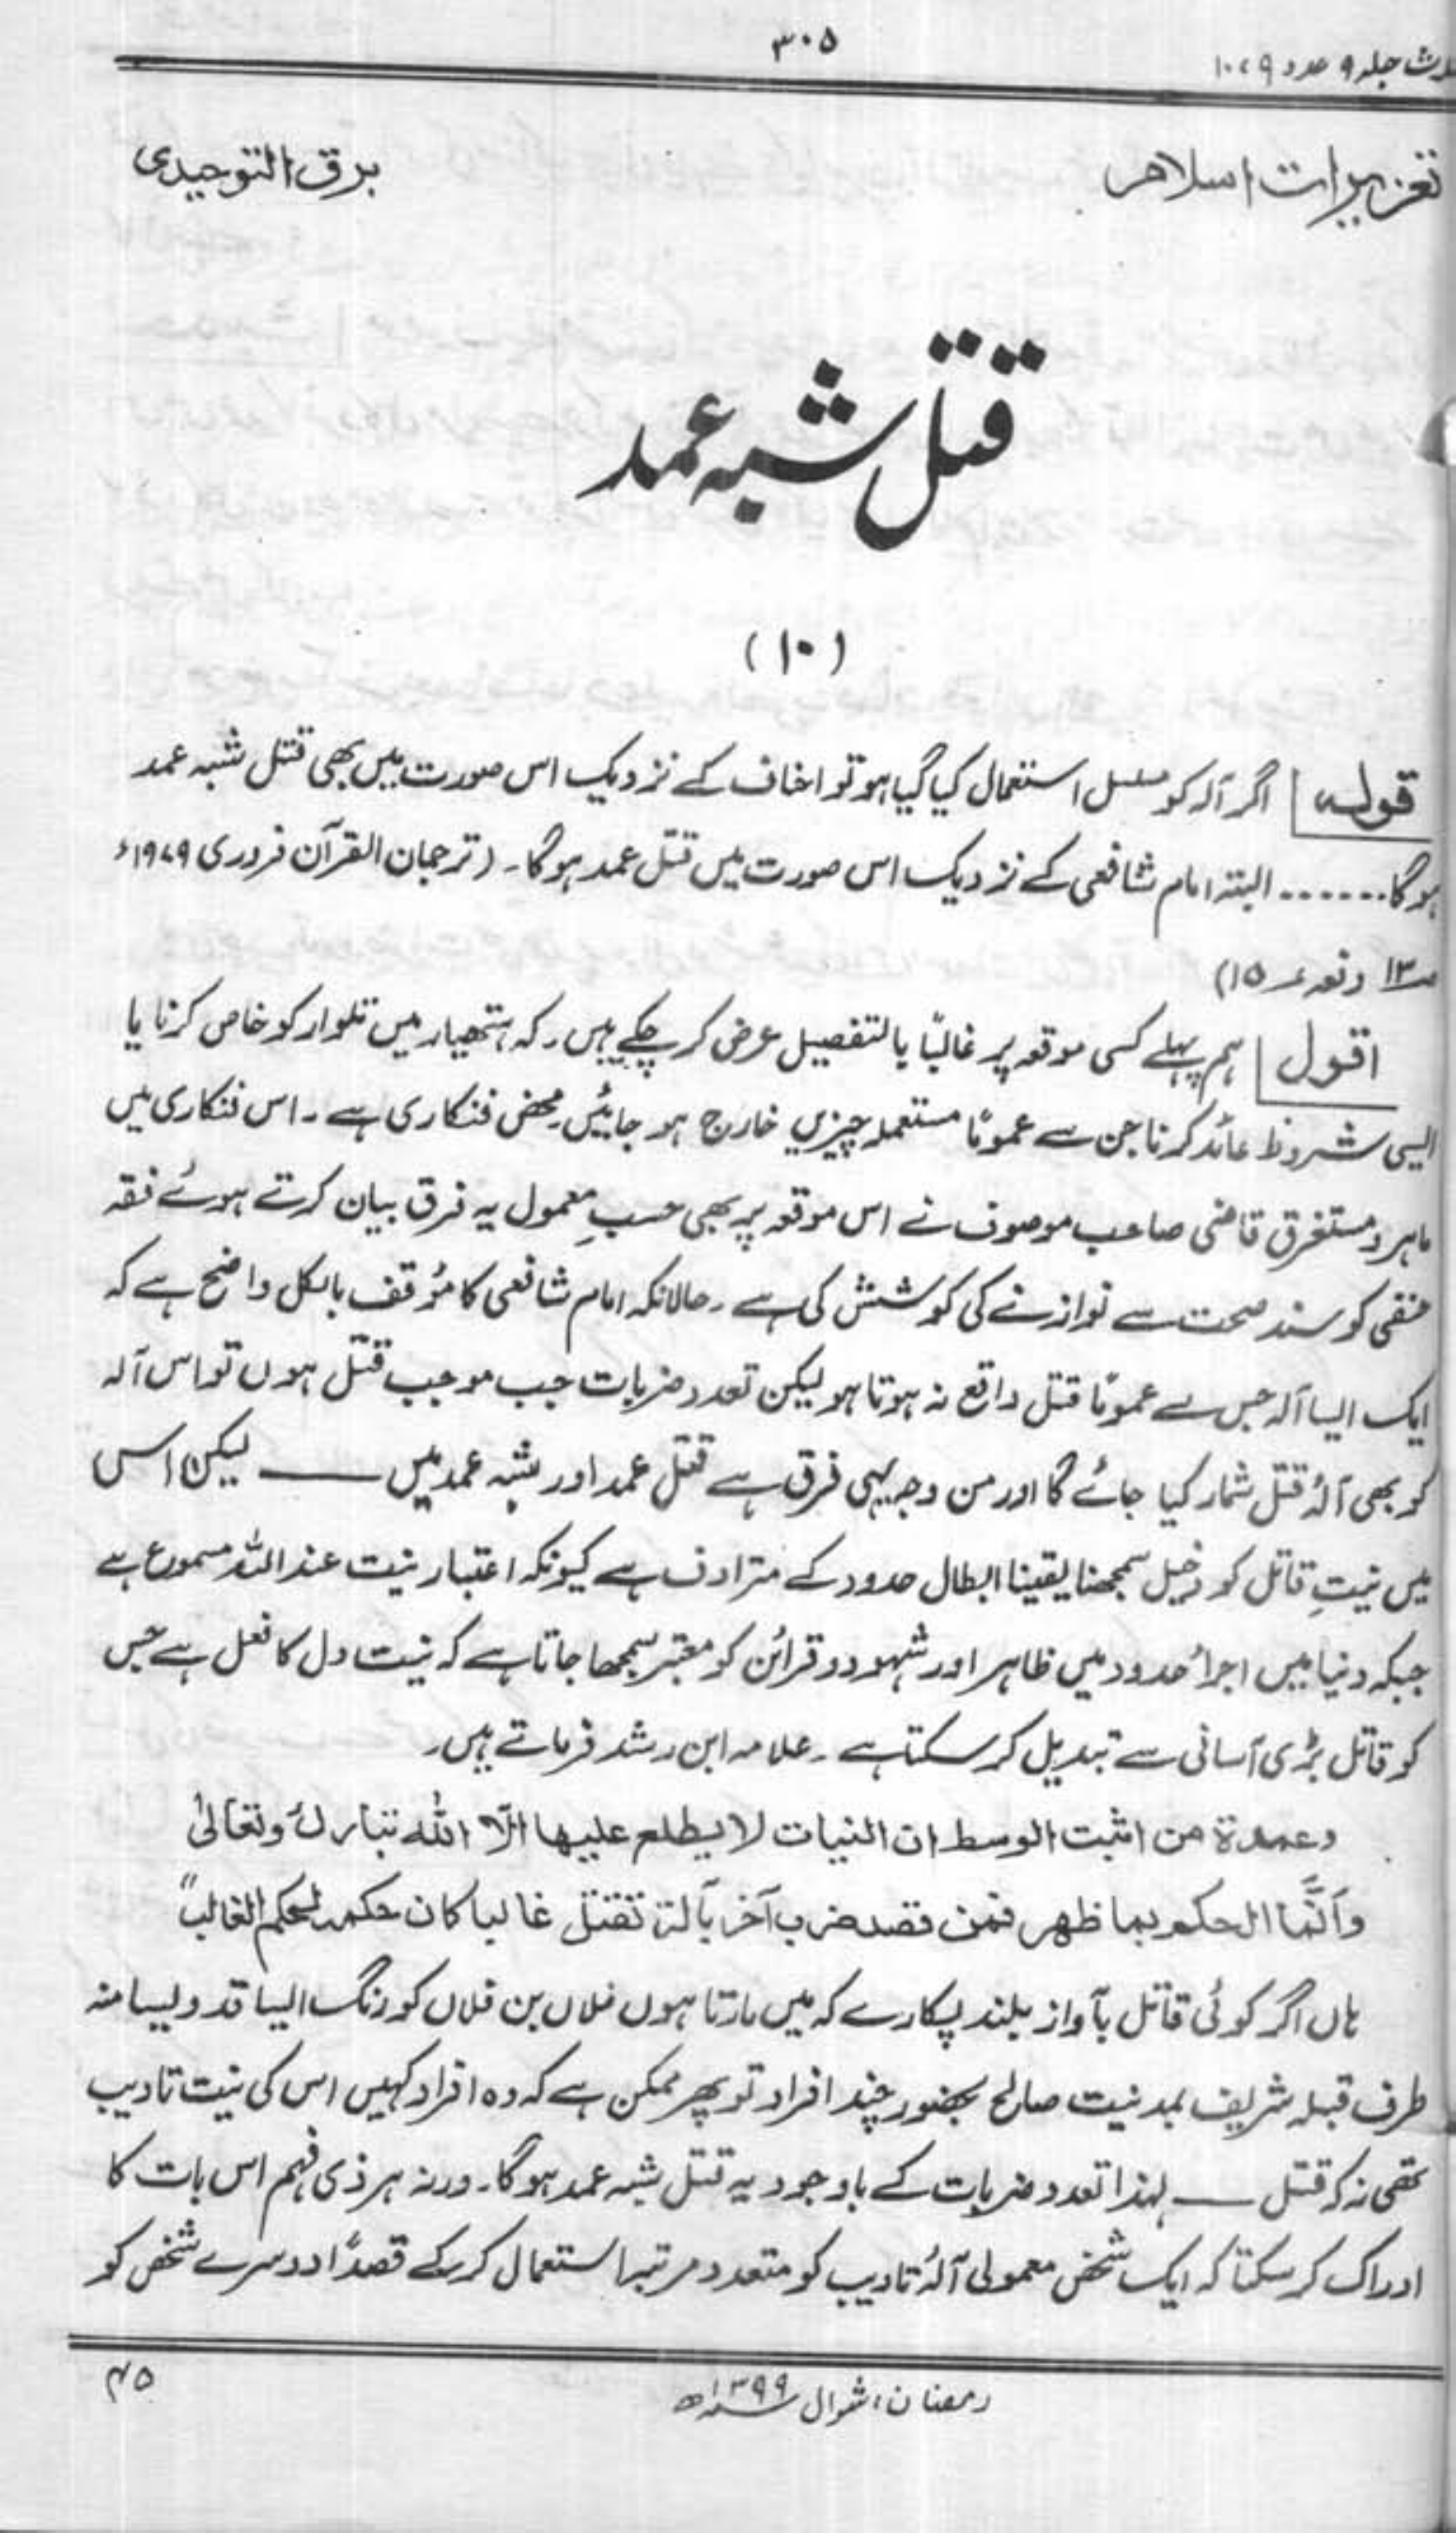 ۳۰۵
جلد ۹ عدد ۹، ۱۰
تعزیرات اسلام
برق التوحیدی
قتل شبہ عمد
(۱۰)
قولہ اگر آلہ کو مسلسل استعمال کیا گیا ہو تو احناف کے نزدیک اس صورت میں بھی قتل شبہ عمد
ہوگا....... البتہ امام شافعی کے نزدیک اس صورت میں قتل عمد ہوگا۔ (ترجمان القرآن فروری ۱۹۷۹ء
صـ۱۳ دفعہ ۱۵)
اقول ہم پہلے کسی موقعہ پر غالبًا بالتفصیل عرض کر چکے ہیں۔ کہ ہتھیار میں تلوار کو خاص کرنا یا
ایسی شروط عائد کرنا جن سے عمومًا مستعملہ چیزیں خارج ہو جائیں۔ محض فنکاری ہے۔ اس فنکاری میں
ماہر و مستغرق قاضی صاحب موصوف نے اس موقعہ پر بھی حسبِ معمول یہ فرق بیان کرتے ہوئے فقہ
حنفی کو سند صحت سے نوازنے کی کوشش کی ہے۔ حالانکہ امام شافعی کا مؤقف بالکل واضح ہے کہ
ایک ایسا آلہ جس سے عمومًا قتل واقع نہ ہوتا ہو لیکن تعدد ضربات جب موجب قتل ہوں تو اس آلہ
کو بھی آلۂ قتل شمار کیا جائے گا اور من وجہ یہی فرق ہے قتل عمد اور شبہ عمد میں ـــــــ لیکن اس
میں نیتِ قاتل کو دخیل سمجھنا یقینا ابطال حدود کے مترادف ہے کیونکہ اعتبار نیت عند اللہ مسموع ہے
جبکہ دنیا میں اجرأ حدود میں ظاہر اور شہود و قرائن کو معتبر سمجھا جاتا ہے کہ نیت دل کا فعل ہے جس
کو قاتل بڑی آسانی سے تبدیل کر سکتا ہے۔ علامہ ابن رشد فرماتے ہیں۔
وعمدة من اثبت الوسط ان النیات لا یطلع علیها الّا اللّٰه تبارك وتعالیٰ
وَاَنَّما الحکم بما ظهر فمن قصد ضرب آخر بآلة تقتل غالبا کان حکمه کحکم الغالب"
ہاں اگر کوئی قاتل بآواز بلند پکارے کہ میں مارتا ہوں فلاں بن فلاں کو رنگ ایسا قد ویسا منہ
طرف قبلہ شریف بمد نیت صالح بحضور چند افراد تو پھر ممکن ہے کہ وہ افراد کہیں اس کی نیت تادیب
تھی نہ کہ قتل ـــــ لہذا تعدد ضربات کے باوجود یہ قتل شبہ عمد ہوگا۔ ورنہ ہر ذی فہم اس بات کا
ادراک کر سکتا کہ ایک شخص معمولی آلۂ تادیب کو متعدد مرتبہ استعمال کر کے قصدًا دوسرے شخص کو
رمضان، شوال ۱۳۹۹ھ
۴۵